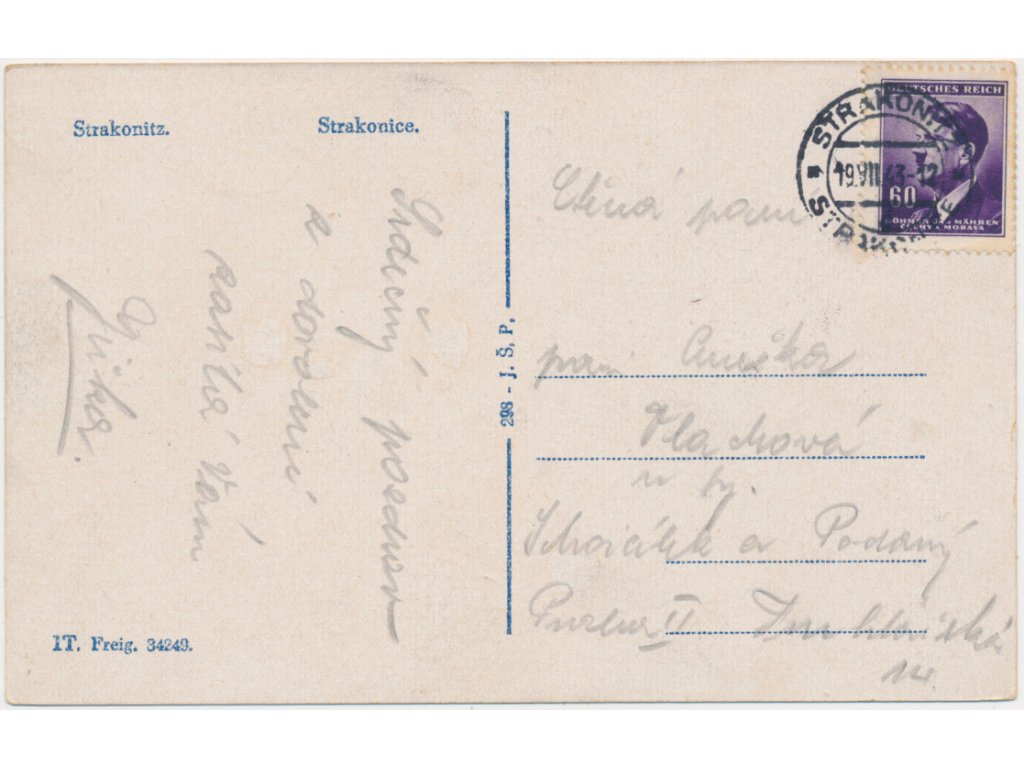 Strakonitz. Strakonice.
Srdečný pozdrav
z dovolené
zasílá Vám
Jiřka.
IT. Freig. 34249.
298 - J. Š. P.
DEUTSCHES REICH
60
BÖHMEN UND MÄHREN
ČECHY A MORAVA
STRAKONITZ
19.VII.43-12
STRAKONICE
Ctěná paní
paní Anežka
Vlachová
u fy.
a Podaný
Praha II
14.